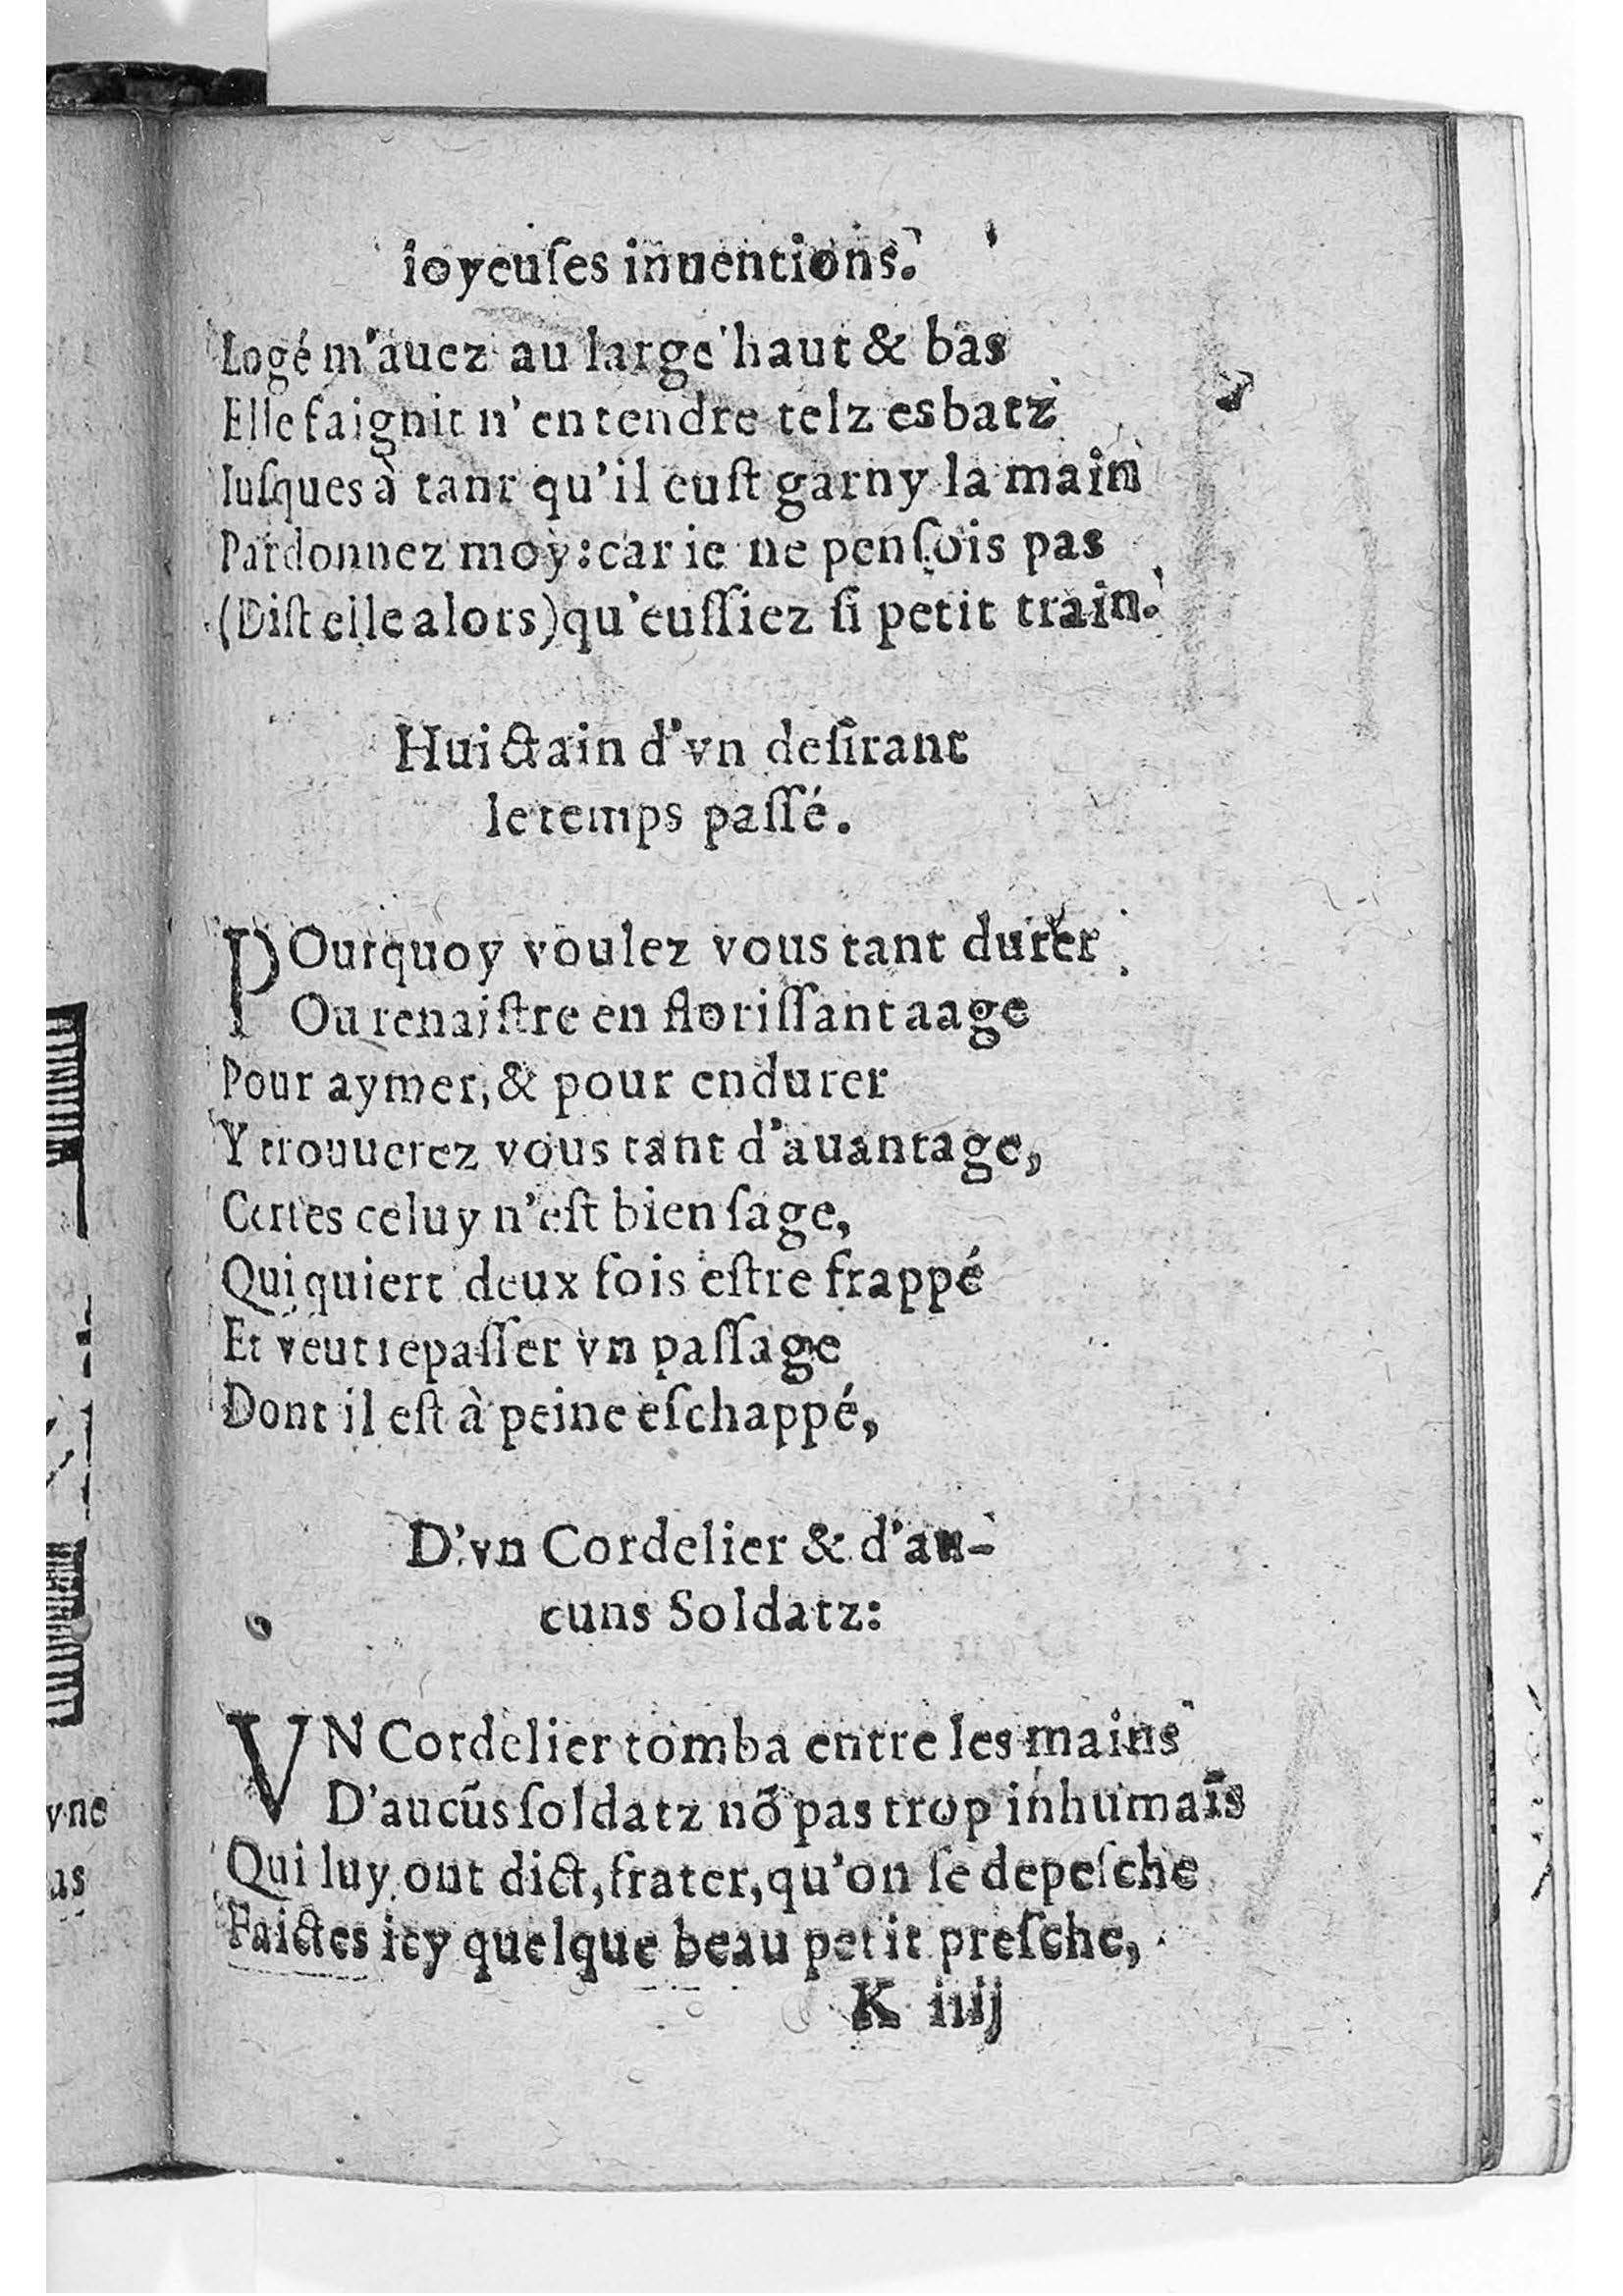 ioyeuſes inuentions.
Logé m'auez au large haut & bas
Elle faignit n'entendre telz esbatz
Iuſques à tant qu'il euſt garny la main
Pardonnez moy: car ie ne penſois pas
(Diſt elle alors) qu'euſſiez ſi petit train.
Huictain d'vn deſirant
le temps paſſé.
POurquoy voulez vous tant durer
Ou renaiſtre en floriſſant aage
Pour aymer, & pour endurer
Y trouuerez vous tant d'auantage,
Certes celuy n'eſt bien ſage,
Qui quiert deux fois eſtre frappé
Et veut repaſſer vn paſſage
Dont il eſt à peine eſchappé,
D'vn Cordelier & d'au-
cuns Soldatz:
VN Cordelier tomba entre les mains
D'aucũs ſoldatz nõ pas trop inhumaĩs
Qui luy ont dict, frater, qu'on ſe depeſche
Faictes icy quelque beau petit preſche,
K iiij
vne
as